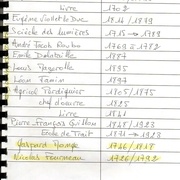 Livre 1702
Eugène Viollet le Duc 1814 / 1879
Siècle des lumières 1715 → 1789
André Jacob Roubo 1739 ≡ 1782
Emile Delataille
Louis Mazerolle 1895
Léon Jamin 1897
Agricol Perdiguier 1805 / 1875
chef d'œuvre 1825
Livre 1841
Pierre François Guillon 1848 / 1923
Ecole de Trait 1871 → 1923
Gaspard Monge 1746 / 1818
Nicolas Fourneau 1726 / 1792